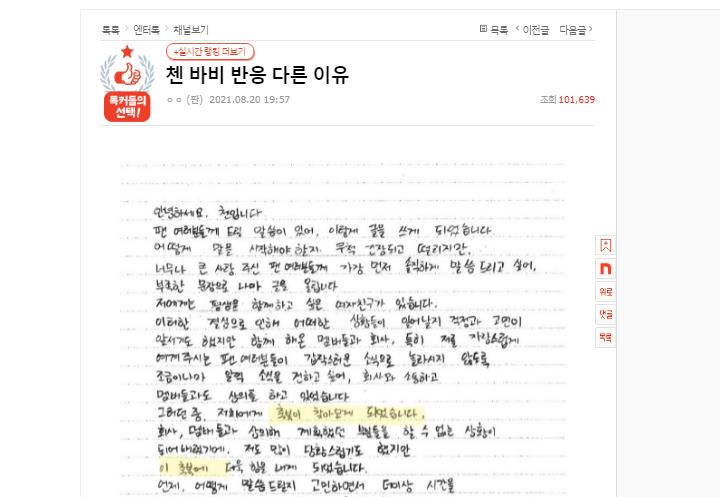 톡톡 > 엔터톡 > 채널보기
목록 < 이전글 다음글 >
톡커들의 선택!
+실시간 랭킹 더보기
첸 바비 반응 다른 이유
ㅇㅇ (판) 2021.08.20 19:57
조회 101,639
안녕하세요. 첸입니다
팬 여러분들께 드릴 말씀이 있어, 이렇게 글을 쓰게 되었습니다.
어떻게 말을 시작해야 할지 무척 긴장되고 떨리지만,
너무나 큰 사랑 주신 팬 여러분들께 가장 먼저 솔직하게 말씀드리고 싶어,
부족한 문장으로 나마 글을 올립니다
저에게는 평생을 함께하고 싶은 여자친구가 있습니다.
이러한 결심으로 인해 어떠한 상황들이 일어날지 걱정과 고민이
앞서기도 했지만 함께 해온 멤버들과 회사, 특히 저를 자랑스럽게
여겨주시는 팬 여러분들이 갑작스러운 소식으로 놀라시지 않도록
조금이나마 일찍 소식을 전하고 싶어, 회사와 소통하고
멤버들과도 상의를 하고 있었습니다
그러던 중, 저희에게 축복이 찾아오게 되었습니다.
회사, 멤버들과 상의해 계획했던 부분들을 할 수 없는 상황이
되어버렸기에, 저도 많이 당황스럽기도 했지만
이 축복에 더욱 힘을 내게 되었습니다.
언제, 어떻게 말씀드릴지 고민하면서 더이상 시간을
위로
댓글
목록